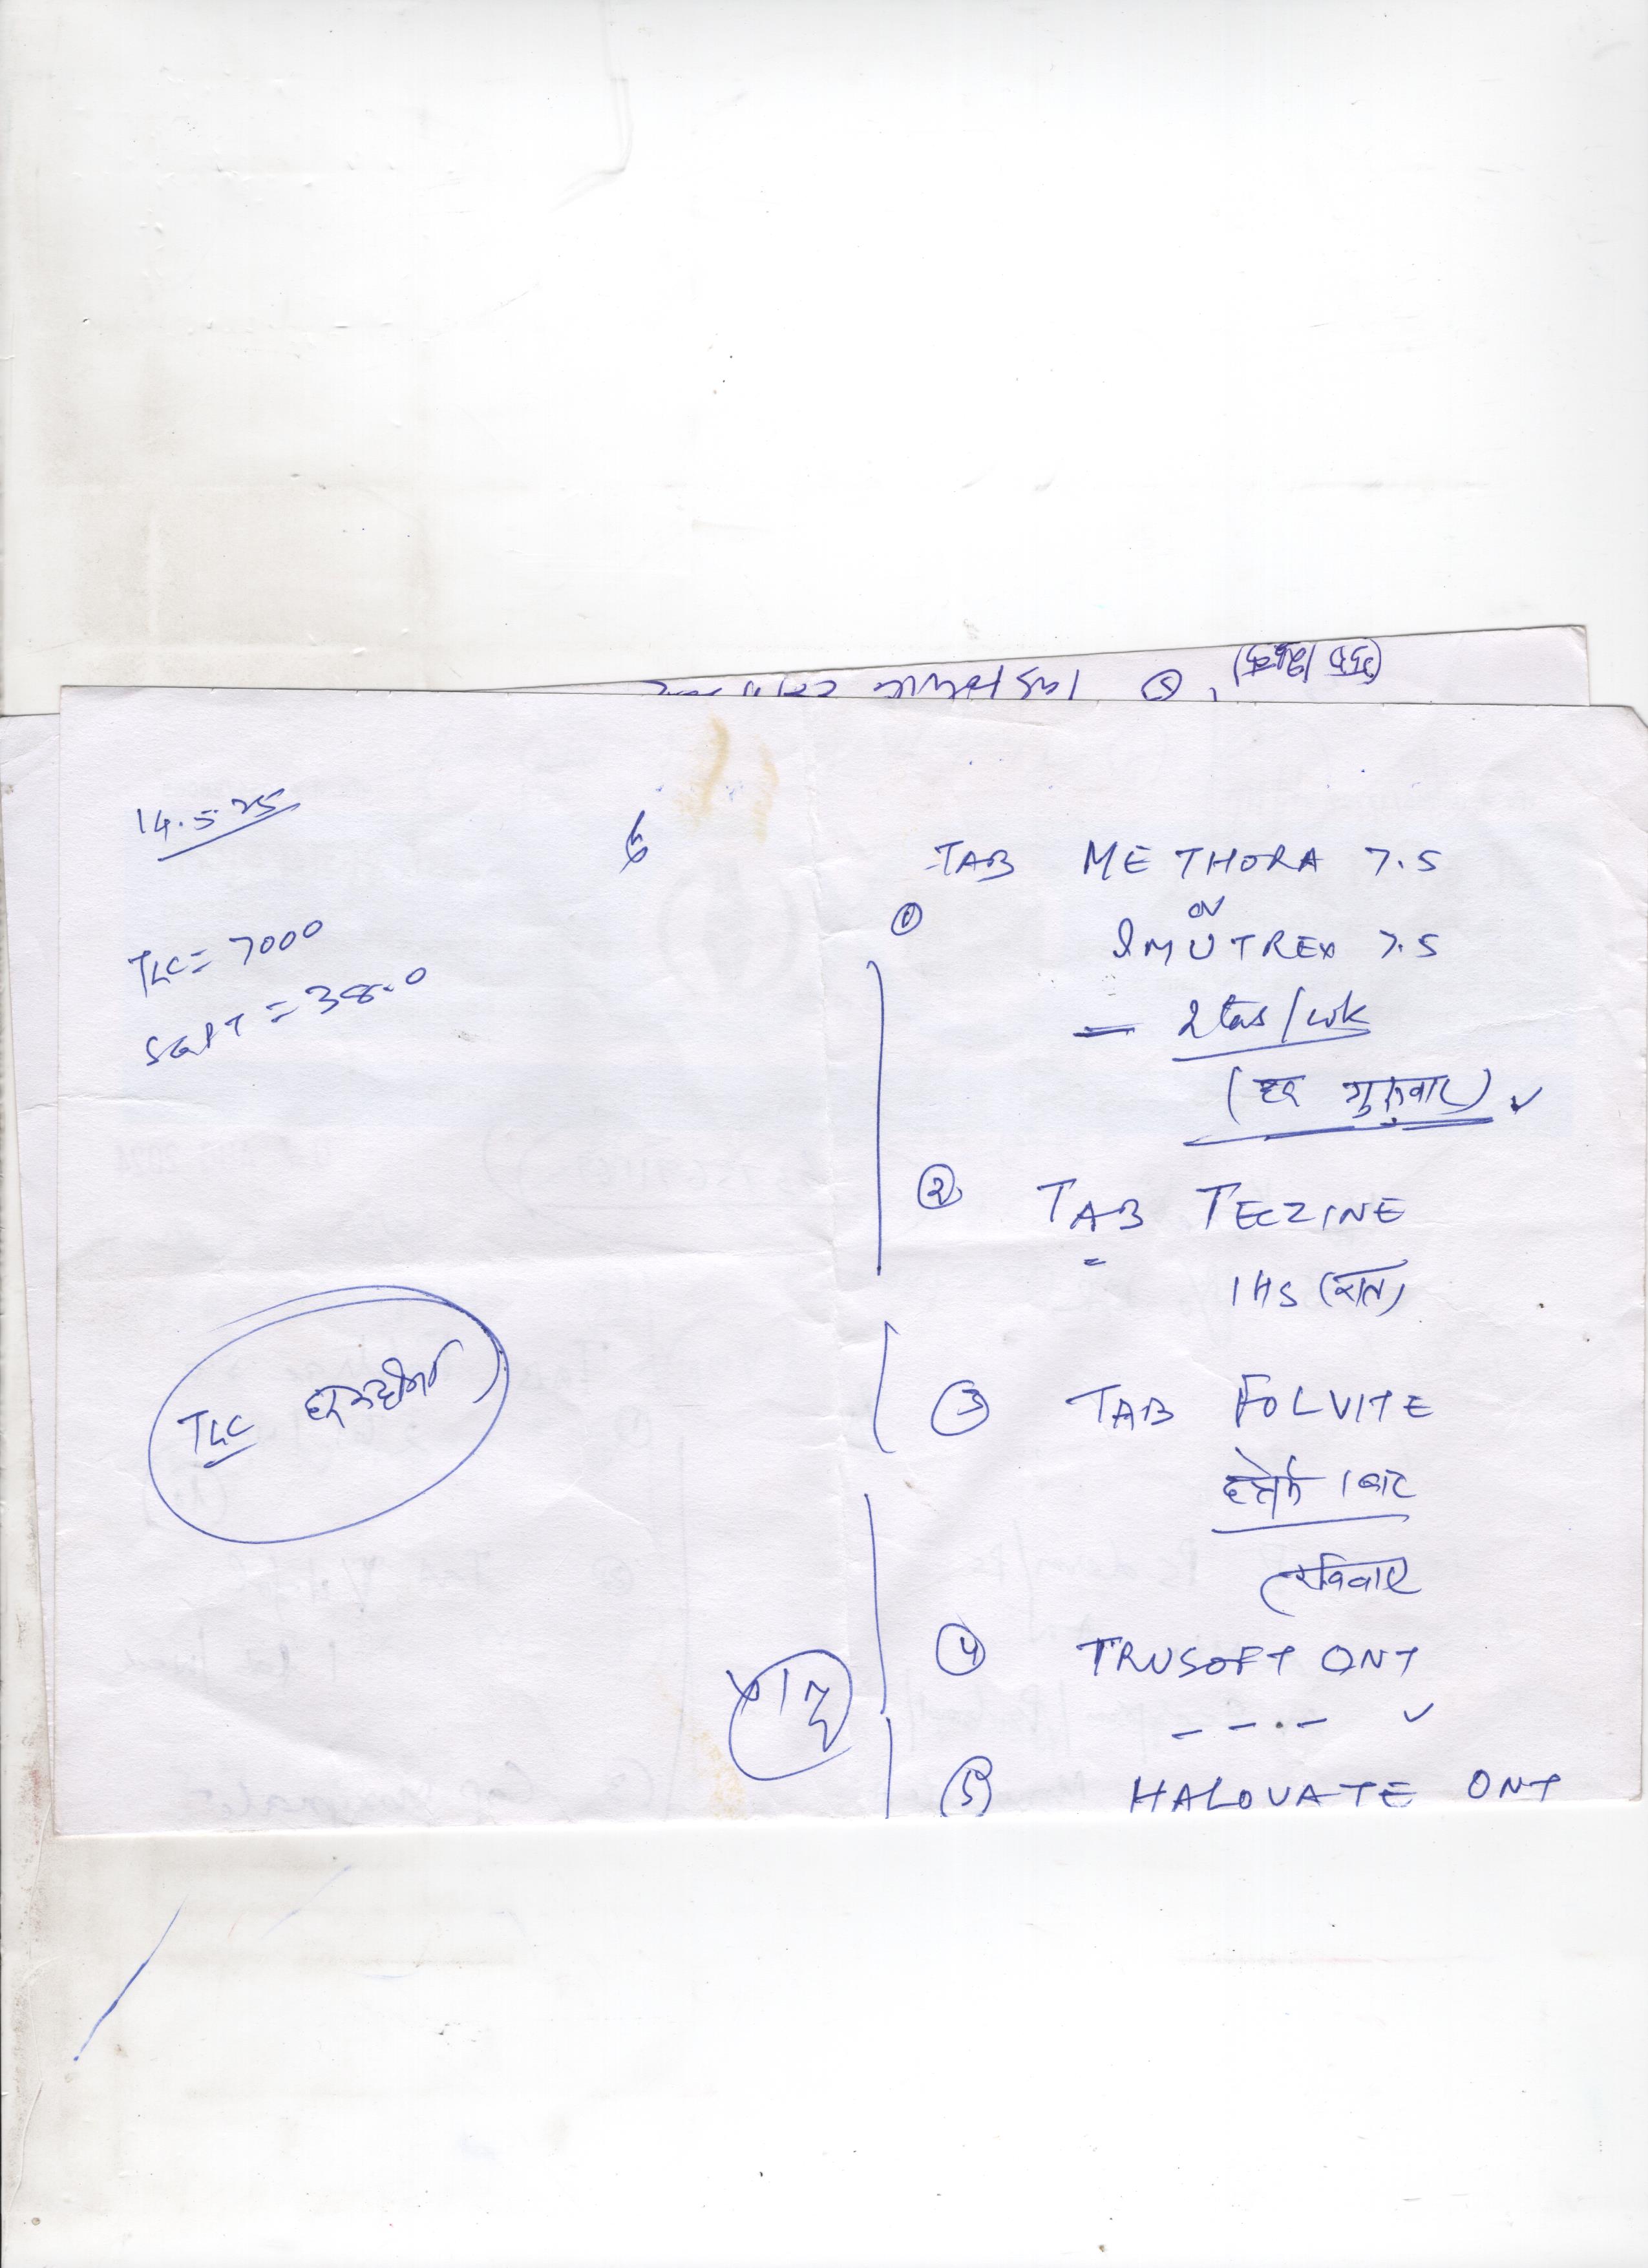 14.5.25
TLC = 7000
SGPT = 38.0
TAB METHORA 7.5
①
or
IMUTREX 7.5
— 2 tabs/wk
(हर गुरुवार) ✓
② TAB TECZINE
1 HS (रात)
③ TAB FOLVITE
हफ्ते में 1 बार
(रविवार
TLC हर महीने
④ TRUSOFT ONT
⑤ HALOVATE ONT